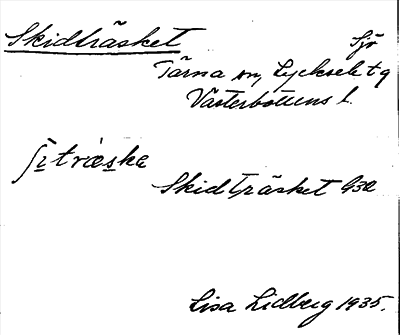 Skidträsket Sjö
Tärna sn, Lycksele tg
Västerbottens l.
ʃɪtræska
Skidträsket G32
Lisa Lidberg 1935.